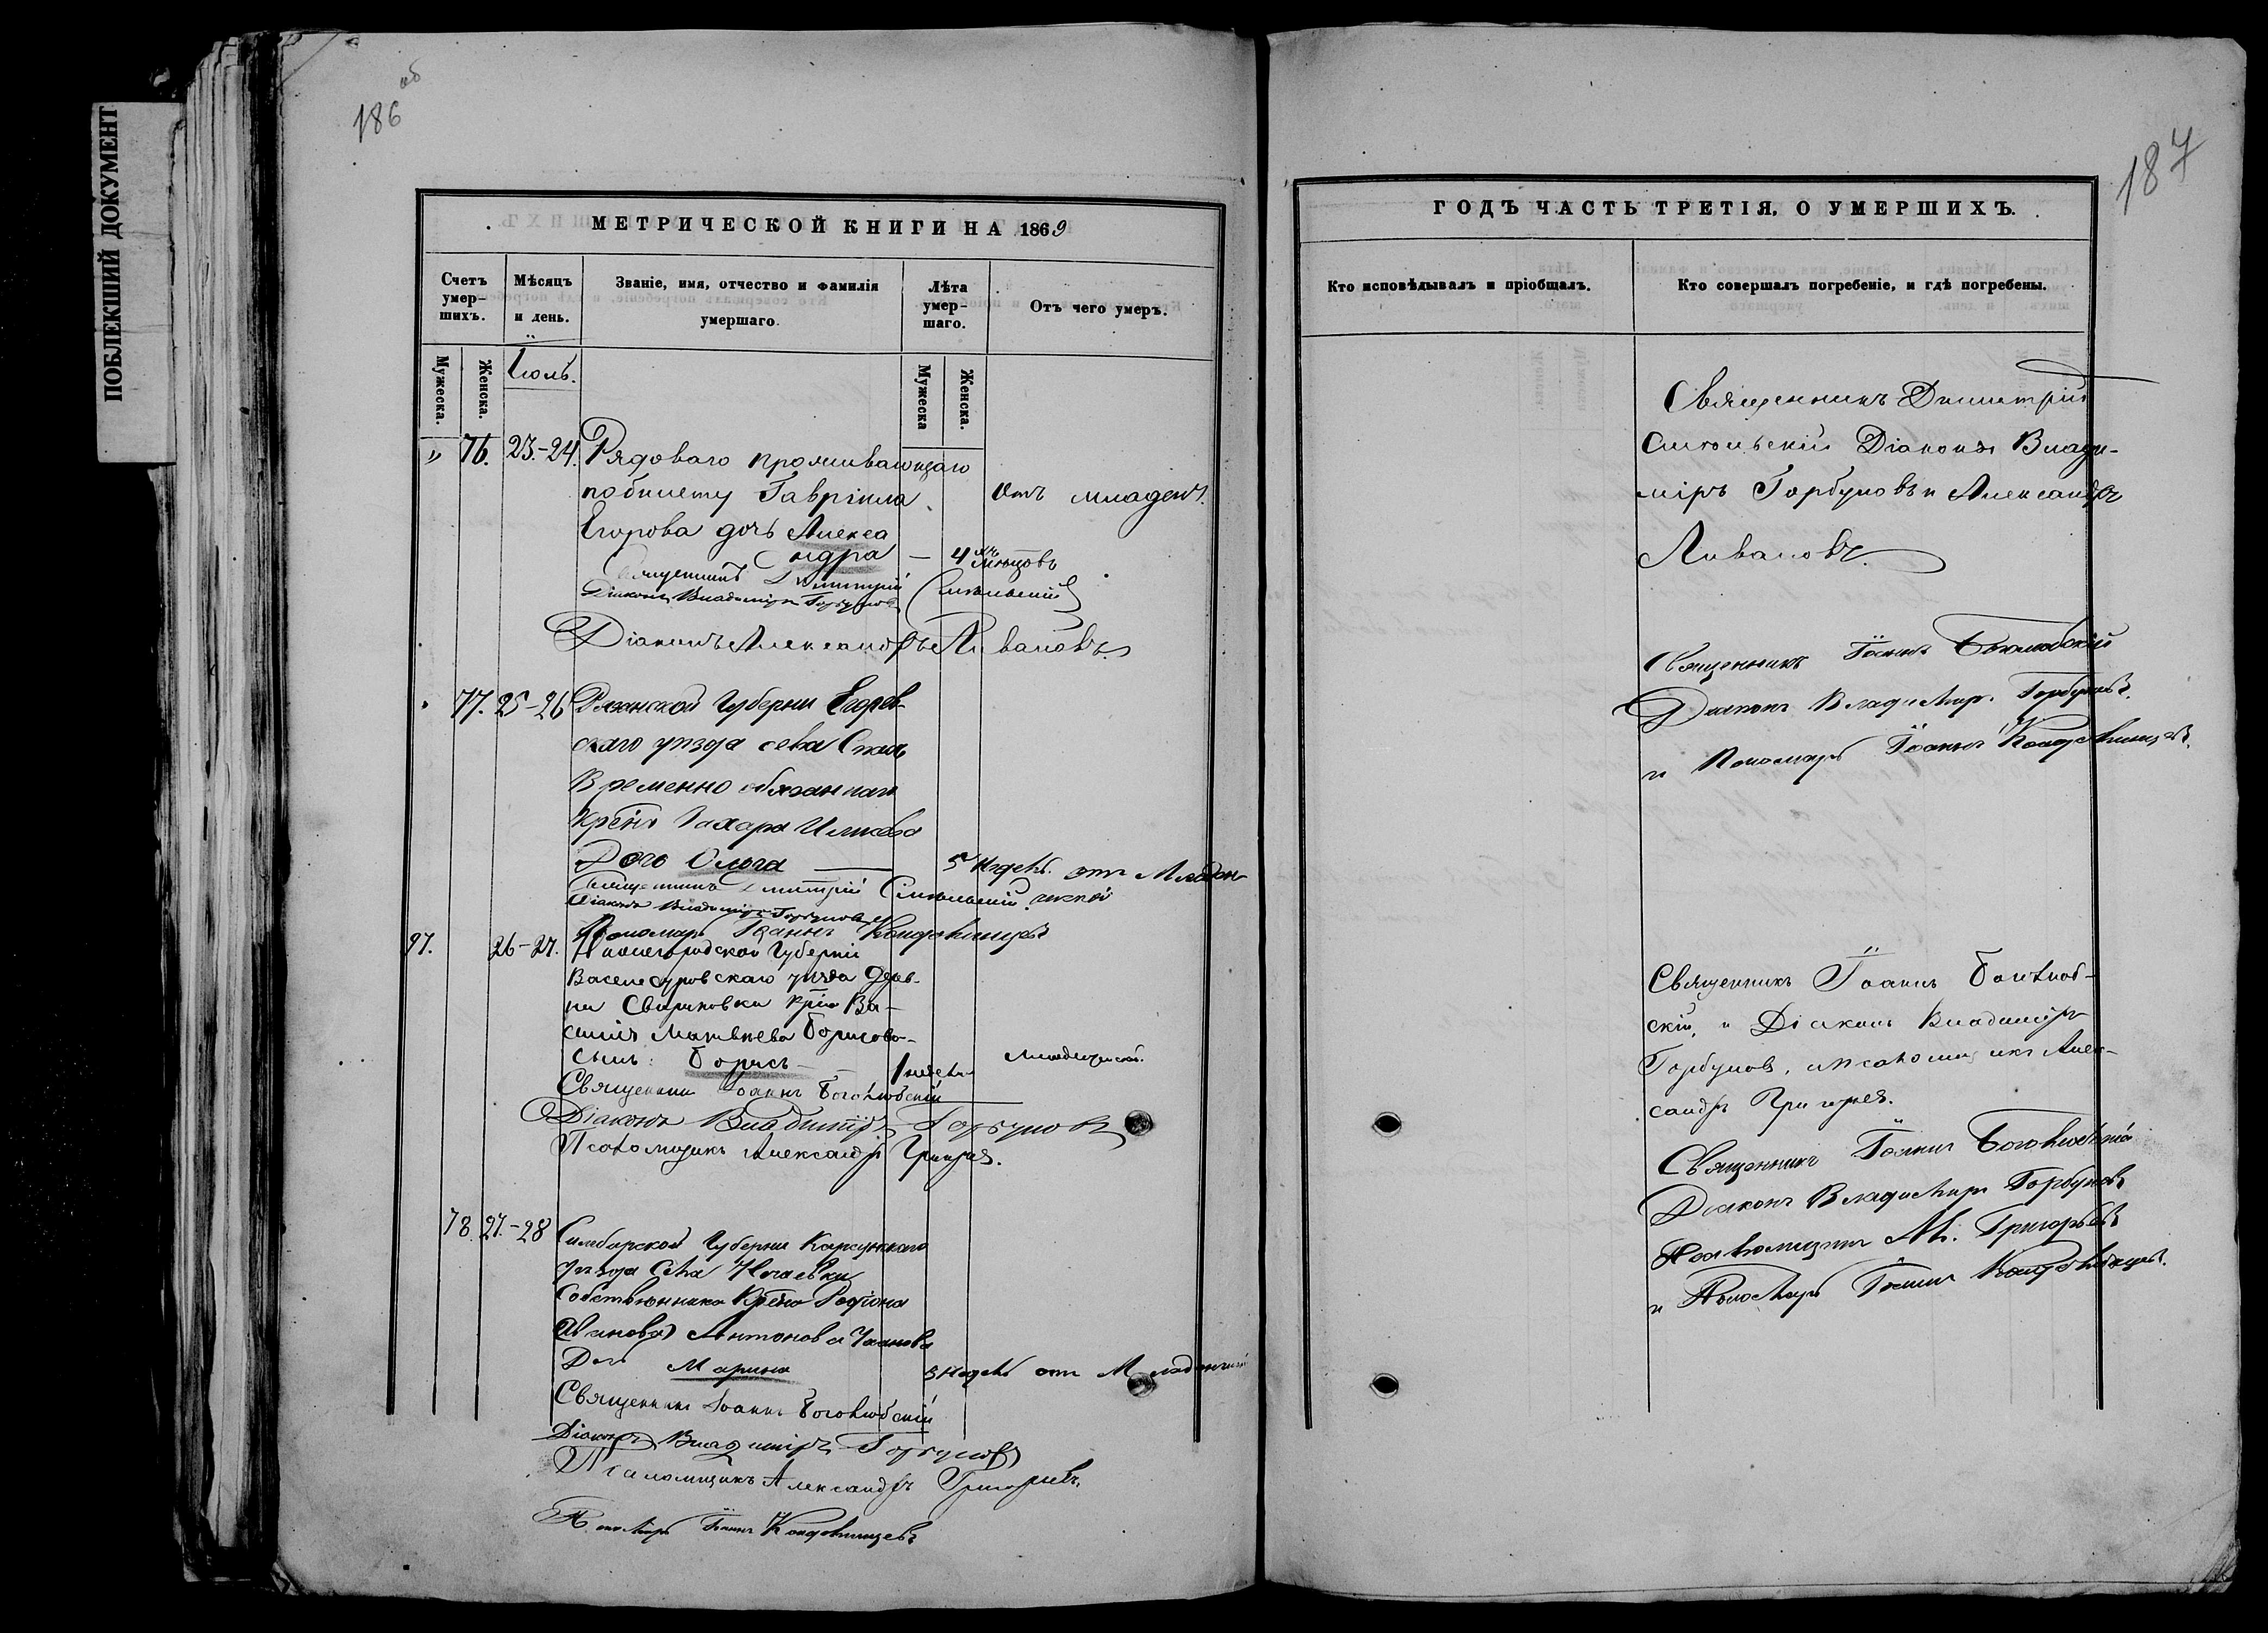 ПОБЛЕКШИЙ ДОКУМЕНТ
186 об
187
МЕТРИЧЕСКОЙ КНИГИ НА 1869
Счетъ умер-шихъ.
Мѣсяцъ и день.
Званіе, имя, отчество и фамилія умершаго.
Лѣта умер-шаго.
Отъ чего умеръ.
Мужеска.
Женска.
Іюль.
Мужеска
Женска.
" 76. 23.-24. Рядоваго проживающаго
побилету Гавріила Отъ младен.
Егорова дочь Алекса
ндра — 4 мѣсяцовъ
Священникъ Димитрій Смольскій
Діаконъ Владиміръ Горбуновъ
Діаконъ Александръ Ливановъ
77. 25-26 Рязанской Губерніи Егорев-
скаго уѣзда села
Временно обязаннаго
Крестн Захара
Дочь Ольга — 5 недѣл. отъ Младен
Священникъ Димитрій Смольскій ческой
Діаконъ Владиміръ Горбуновъ
Пономарь Іоаннъ
97. 26-27. Нижегородской Губерніи
Василсурскаго уѣзда Дерев-
ни крес Ва-
силія Матвѣева Борисова
сынъ: Борисъ — 1 недѣли Младенческой.
Священникъ Іоаннъ Боголюбскій
Діаконъ Владиміръ Горбуновъ
Псаломщикъ Александръ Григорьевъ.
78. 27.-28 Симбирской Губерніи Карсунскаго
уѣзда Села
Собственника Крестн Родіона
Антонова
Дочь Марина 3 недѣл отъ Младенческой
Священникъ Іоаннъ Боголюбскій
Діаконъ Владиміръ Горбуновъ
Псаломщикъ Александръ Григорьевъ.
Пономарь Іоаннъ
ГОДЪ ЧАСТЬ ТРЕТІЯ, О УМЕРШИХЪ.
Кто исповѣдывалъ и пріобщалъ.
Кто совершалъ погребеніе, и гдѣ погребены.
Священникъ Димитрій
Смольскій Діаконы Влади-
міръ Горбуновъ и Александръ
Ливановъ.
Священникъ Іоаннъ Боголюбскій
Діаконъ Владиміръ Горбуновъ.
и Пономарь Іоаннъ
Священникъ Іоаннъ Боголюб-
скій, и Діаконъ Владиміръ
Горбуновъ, псаломщикъ Алек-
сандръ Григорьевъ.
Священникъ Іоаннъ Боголюбскій
Діаконъ Владиміръ Горбуновъ
Псаломщикъ Ал. Григорьевъ
и Пономарь Іоаннъ